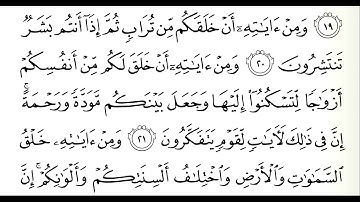 ١٩ وَمِنْ ءَايَـٰتِهِۦٓ أَنْ خَلَقَكُم مِّن تُرَابٍ ثُمَّ إِذَآ أَنتُم بَشَرٌ
تَنتَشِرُونَ ٢٠ وَمِنْ ءَايَـٰتِهِۦٓ أَنْ خَلَقَ لَكُم مِّنْ أَنفُسِكُمْ
أَزْوَٰجًا لِّتَسْكُنُوٓا۟ إِلَيْهَا وَجَعَلَ بَيْنَكُم مَّوَدَّةً وَرَحْمَةً ۚ
إِنَّ فِى ذَٰلِكَ لَـَٔايَـٰتٍ لِّقَوْمٍ يَتَفَكَّرُونَ ٢١ وَمِنْ ءَايَـٰتِهِۦ خَلْقُ
ٱلسَّمَـٰوَٰتِ وَٱلْأَرْضِ وَٱخْتِلَـٰفُ أَلْسِنَتِكُمْ وَأَلْوَٰنِكُمْ ۚ إِنَّ